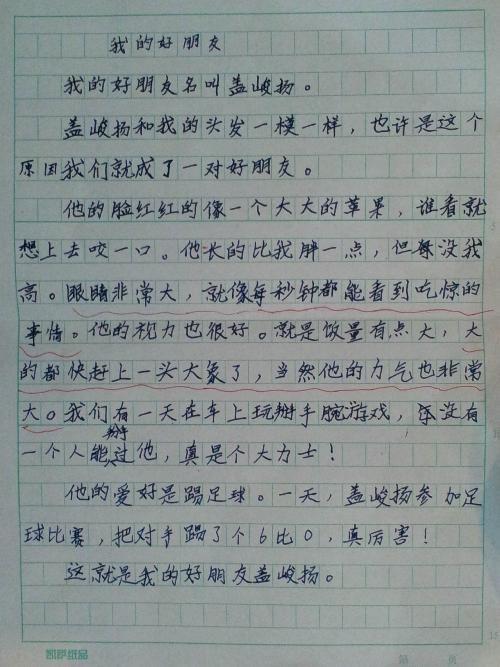 我的好朋友
我的好朋友名叫盖峻扬。
盖峻扬和我的头发一模一样，也许是这个
原因我们就成了一对好朋友。
他的脸红红的像一个大大的苹果，谁看就
想上去咬一口。他长的比我胖一点，但没我
高。眼睛非常大，就像每秒钟都能看到吃惊的
事情。他的视力也很好。就是饭量有点大，大
的都快赶上一头大象了，当然他的力气也非常
大。我们有一天在车上玩掰手腕游戏，没有
一个人能掰过他，真是个大力士！
他的爱好是踢足球。一天，盖峻扬参加足
球比赛，把对手踢了个6比0，真厉害！
这就是我的好朋友盖峻扬。
凯萨纸品
第 页
15